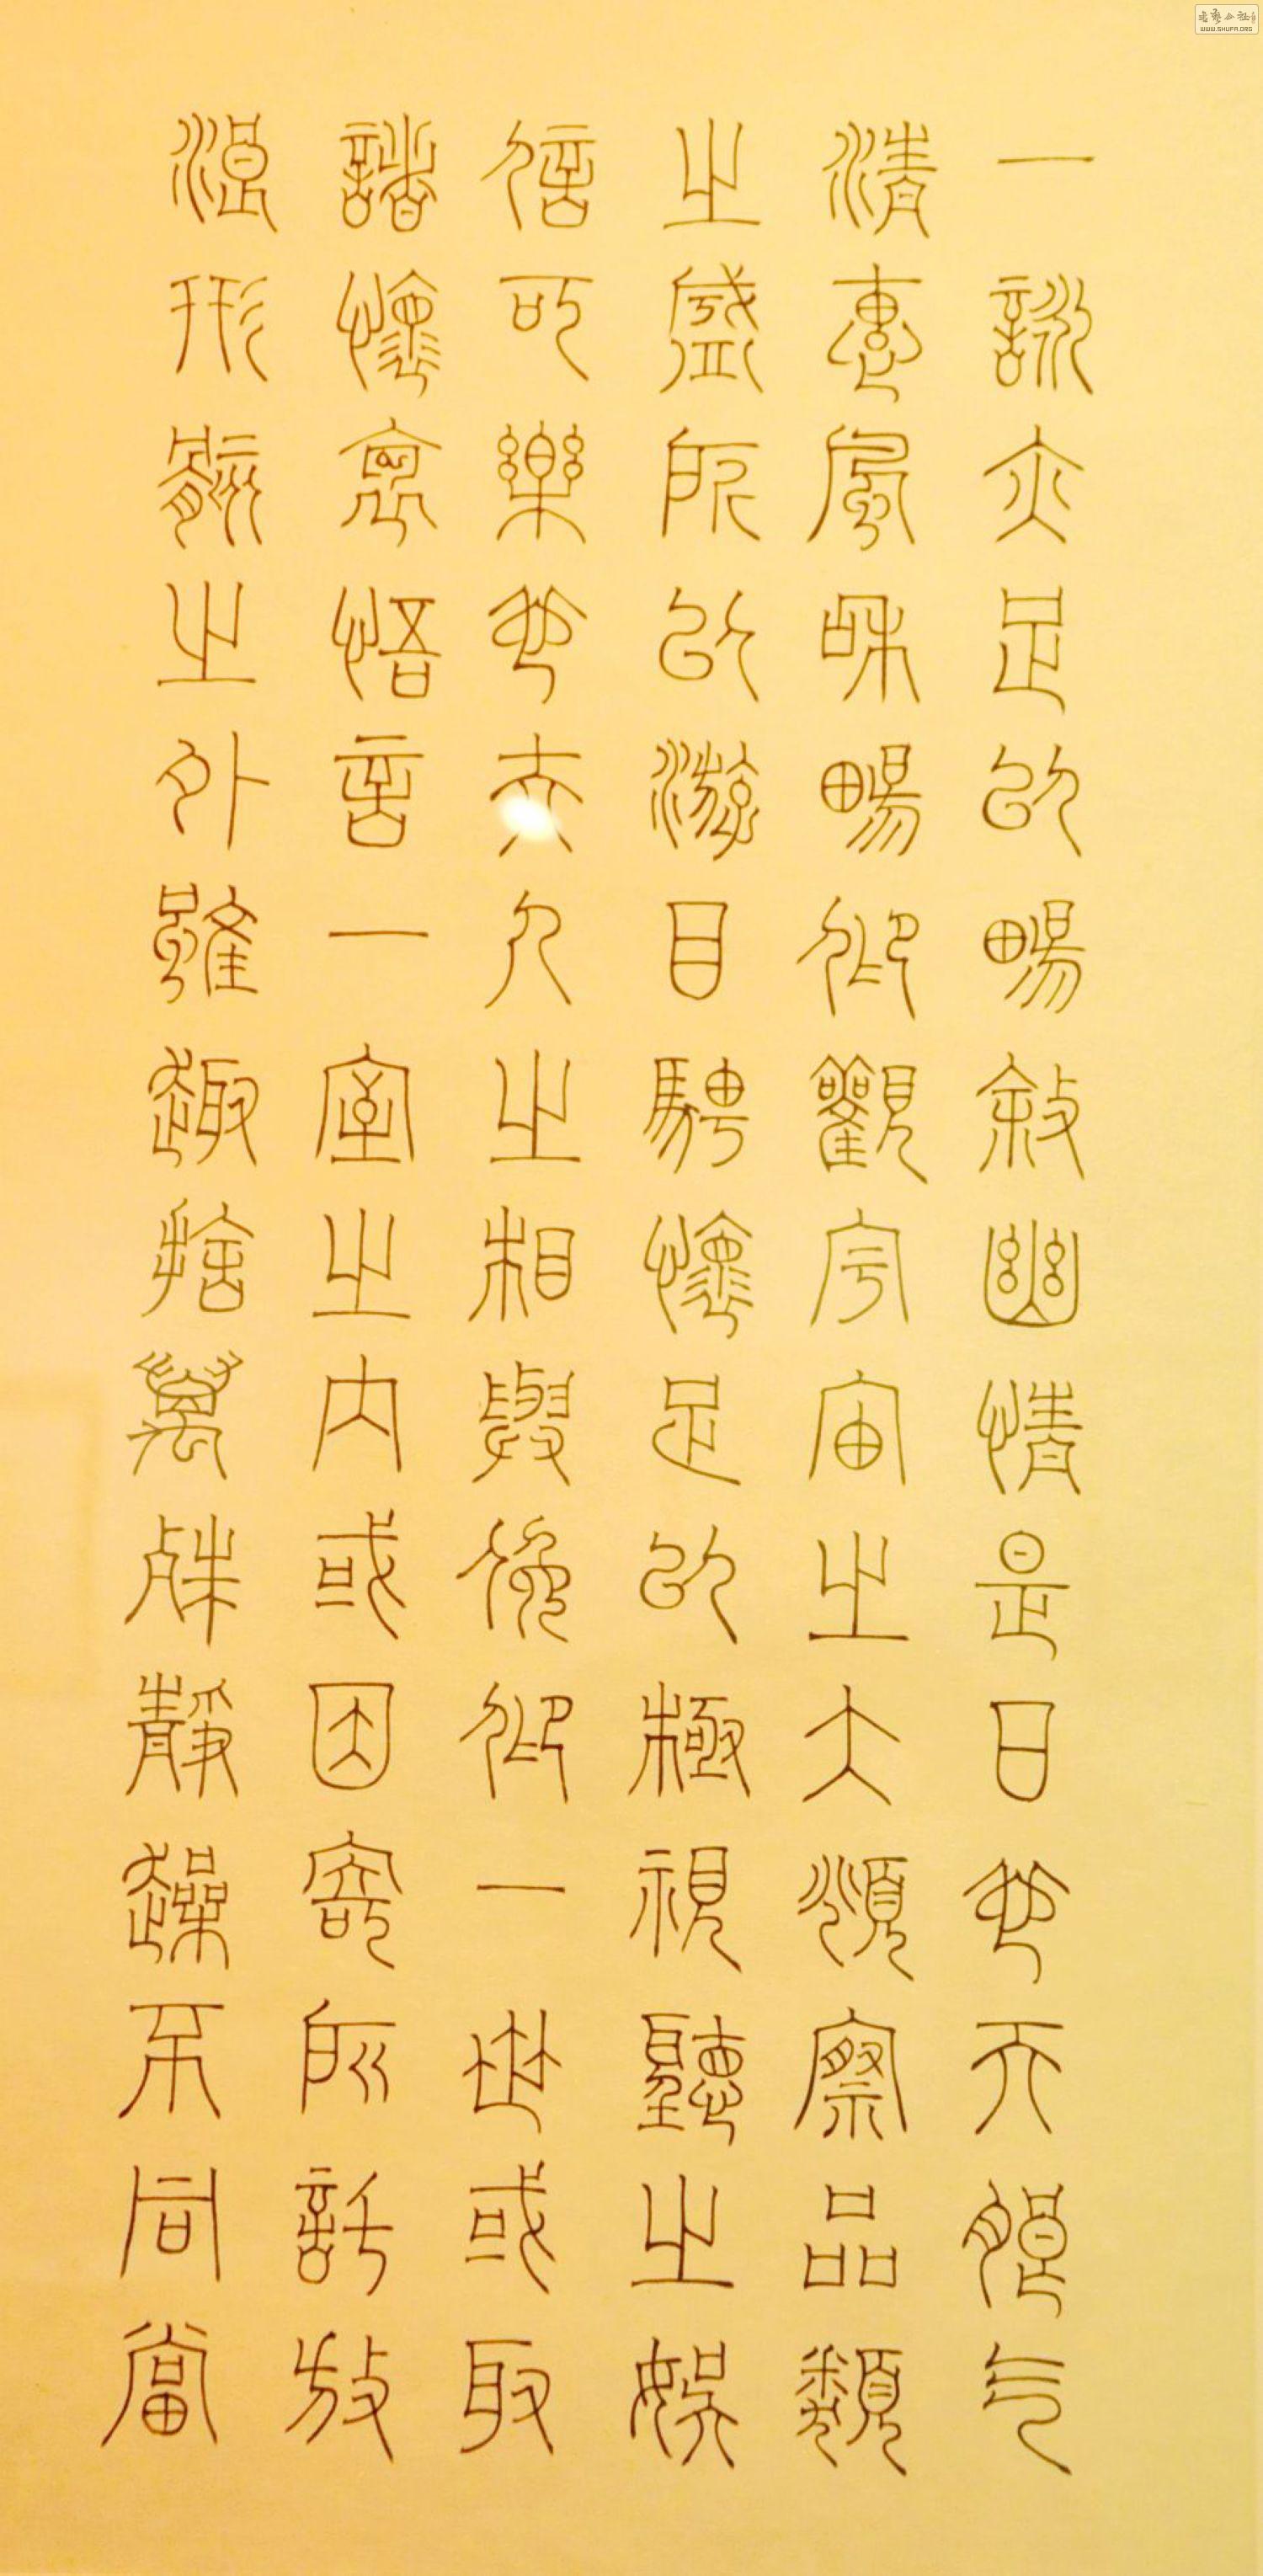 一詠亦足以暢敘幽情是日也天朗气
清惠風和暢仰觀宇宙之大頫察品類
之盛所以游目騁懷足以極視聽之娛
信可樂也夫人之相與俛仰一世或取
諸懷裹悟言一室之内或因寄所託放
浪形骸之外雖趣捨萬殊靜躁不同當
WWW.SHUFA.ORG